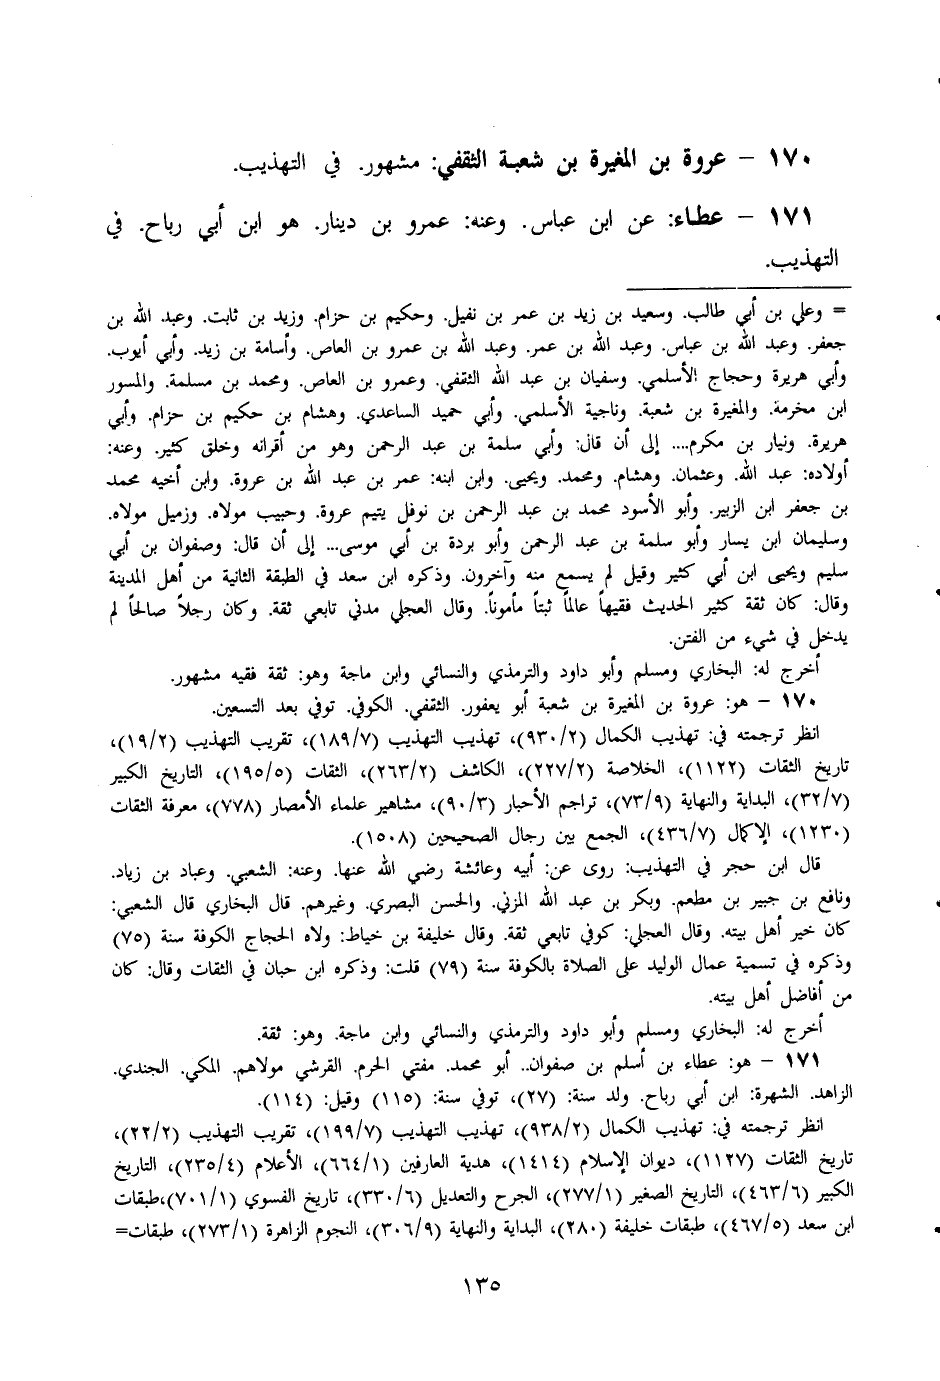 ١٧٠ - عروة بن المغيرة بن شعبة الثقفي: مشهور. في التهذيب.
١٧١ - عطاء: عن ابن عباس. وعنه: عمرو بن دينار. هو ابن أبي رباح. في
التهذيب.
= وعلي بن أبي طالب. وسعيد بن زيد بن عمر بن نفيل. وحكيم بن حزام. وزيد بن ثابت. وعبد الله بن
جعفر. وعبد الله بن عباس. وعبد الله بن عمر. وعبد الله بن عمرو بن العاص. وأسامة بن زيد. وأبي أيوب.
وأبي هريرة وحجاج الأسلمي. وسفيان بن عبد الله الثقفي. وعمرو بن العاص. ومحمد بن مسلمة. والمسور
ابن مخرمة. والمغيرة بن شعبة. وناجية الأسلمي. وأبي حميد الساعدي. وهشام بن حكيم بن حزام. وأبي
هريرة. ونيار بن مكرم.... إلى أن قال: وأبي سلمة بن عبد الرحمن وهو من أقرانه وخلق كثير. وعنه:
أولاده: عبد الله. وعثمان. وهشام. ومحمد. ويحيى. وابن ابنه: عمر بن عبد الله بن عروة. وابن أخيه محمد
بن جعفر ابن الزبير. وأبو الأسود محمد بن عبد الرحمن بن نوفل يتيم عروة. وحبيب مولاه. وزميل مولاه.
وسليمان ابن يسار وأبو سلمة بن عبد الرحمن وأبو بردة بن أبي موسى... إلى أن قال: وصفوان بن أبي
سليم ويحيى ابن أبي كثير وقيل لم يسمع منه وآخرون. وذكره ابن سعد في الطبقة الثانية من أهل المدينة
وقال: كان ثقة كثير الحديث فقيهاً عالماً ثبتاً مأموناً. وقال العجلي مدني تابعي ثقة. وكان رجلاً صالحاً لم
يدخل في شيء من الفتن.
أخرج له: البخاري ومسلم وأبو داود والترمذي والنسائي وابن ماجة وهو: ثقة فقيه مشهور.
١٧٠ - هو: عروة بن المغيرة بن شعبة أبو يعفور. الثقفي. الكوفي. توفي بعد التسعين.
انظر ترجمته في: تهذيب الكمال (٩٣٠/٢)، تهذيب التهذيب (١٨٩/٧)، تقريب التهذيب (١٩/٢)،
تاريخ الثقات (١١٢٢)، الخلاصة (٢٢٧/٢)، الكاشف (٢٦٣/٢)، الثقات (١٩٥/٥)، التاريخ الكبير
(٣٢/٧)، البداية والنهاية (٧٣/٩)، تراجم الأحبار (٩٠/٣)، مشاهير علماء الأمصار (٧٧٨)، معرفة الثقات
(١٢٣٠)، الإكمال (٤٣٦/٧)، الجمع بين رجال الصحيحين (١٥٠٨).
قال ابن حجر في التهذيب: روى عن: أبيه وعائشة رضي الله عنها. وعنه: الشعبي. وعباد بن زياد.
ونافع بن جبير بن مطعم. وبكر بن عبد الله المزني. والحسن البصري. وغيرهم. قال البخاري قال الشعبي:
كان خير أهل بيته. وقال العجلي: كوفي تابعي ثقة. وقال خليفة بن خياط: ولاه الحجاج الكوفة سنة (٧٥)
وذكره في تسمية عمال الوليد على الصلاة بالكوفة سنة (٧٩) قلت: وذكره ابن حبان في الثقات وقال: كان
من أفاضل أهل بيته.
أخرج له: البخاري ومسلم وأبو داود والترمذي والنسائي وابن ماجة. وهو: ثقة.
١٧١ - هو: عطاء بن أسلم بن صفوان.. أبو محمد. مفتي الحرم. القرشي مولاهم. المكي. الجندي.
الزاهد. الشهرة: ابن أبي رباح. ولد سنة: (٢٧)، توفي سنة: (١١٥) وقيل: (١١٤).
انظر ترجمته في: تهذيب الكمال (٩٣٨/٢)، تهذيب التهذيب (١٩٩/٧)، تقريب التهذيب (٢٢/٢)،
تاريخ الثقات (١١٢٧)، ديوان الإسلام (١٤١٤)، هدية العارفين (٦٦٤/١)، الأعلام (٢٣٥/٤)، التاريخ
الكبير (٤٦٣/٦)، التاريخ الصغير (٢٧٧/١)، الجرح والتعديل (٣٣٠/٦)، تاريخ الفسوي (٧٠١/١)،طبقات
ابن سعد (٤٦٧/٥)، طبقات خليفة (٢٨٠)، البداية والنهاية (٣٠٦/٩)، النجوم الزاهرة (٢٧٣/١)، طبقات=
١٣٥